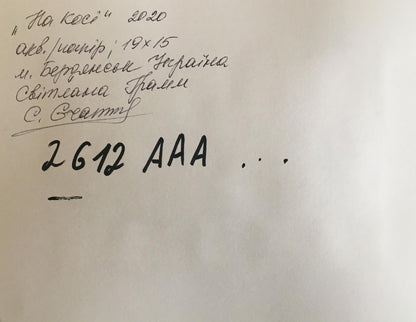 „На косі" 2020
акв./папір; 19×15
м. Бердянськ Україна
Світлана Грамм
С.
2612 ААА ...